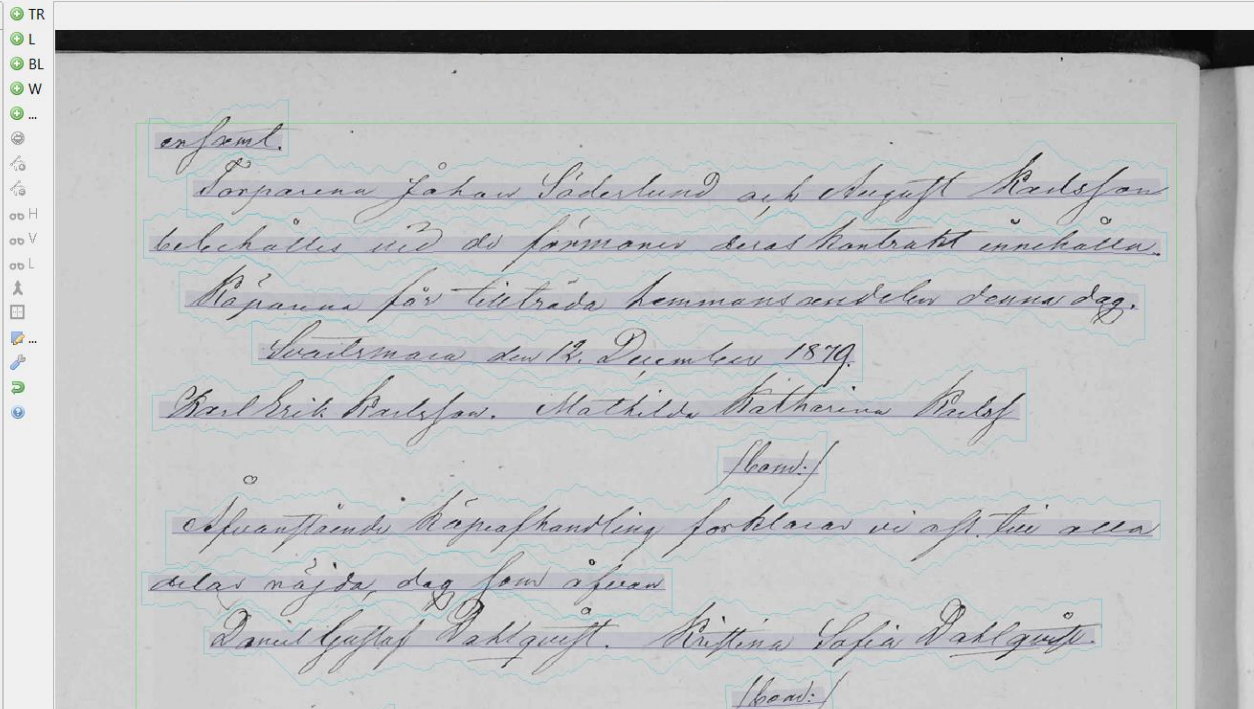 TR
L
BL
W
...
H
V
L
...
ensamt.
Torparena Johan Söderlund och August Karlsson
bibehålles vid de förmoner deras kontrakt innehålla.
Köparena får tillträda hemmansandelen denna dag.
Svartsmara den 12. December 1879.
Karl Erik Karlsson. Mathilda Katharina Karlss
/bom:/
Åfvanstående köpeafhandling förklarar vi oss till alla
delar nöjda, dag som åfvan
Daniel Gustaf Dahlqvist. Kristina Sofia Dahlqvist.
/bom:/